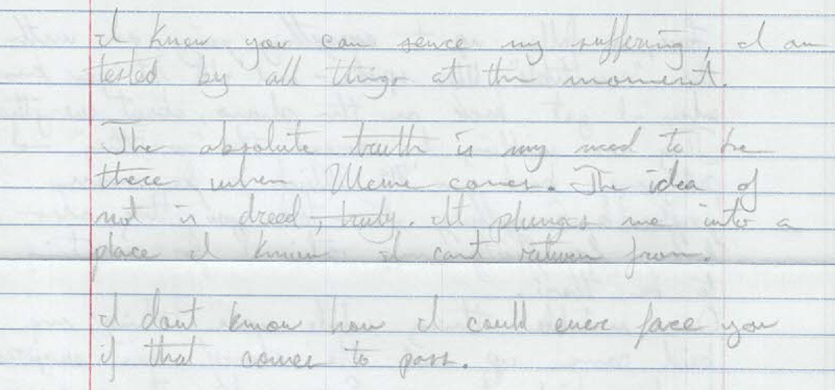 I know you can sence my suffering, I am
tested by all things at the moment.
The absolute truth is my need to be
there when Meme comes. The idea of
not is dread, truly. It plunges me into a
place I know I cant return from.
I dont know how I could ever face you
if that comes to pass.